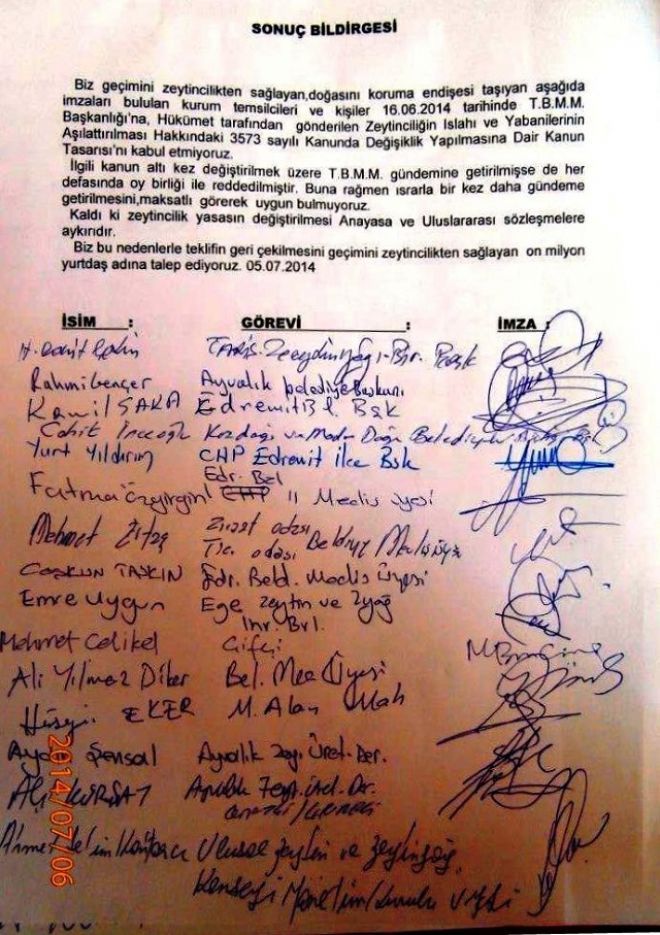 SONUÇ BİLDİRGESİ
Biz geçimini zeytincilikten sağlayan,doğasını koruma endişesi taşıyan aşağıda
imzaları bululan kurum temsilcileri ve kişiler 16.06.2014 tarihinde T.B.M.M.
Başkanlığı'na, Hükümet tarafından gönderilen Zeytinciliğin Islahı ve Yabanilerinin
Aşılattırılması Hakkındaki 3573 sayılı Kanunda Değişiklik Yapılmasına Dair Kanun
Tasarısı'nı kabul etmiyoruz.
İlgili kanun altı kez değiştirilmek üzere T.B.M.M. gündemine getirilmişse de her
defasında oy birliği ile reddedilmiştir. Buna rağmen ısrarla bir kez daha gündeme
getirilmesini,maksatlı görerek uygun bulmuyoruz.
Kaldı ki zeytincilik yasasın değiştirilmesi Anayasa ve Uluslararası sözleşmelere
aykırıdır.
Biz bu nedenlerle teklifin geri çekilmesini geçimini zeytincilikten sağlayan on milyon
yurtdaş adına talep ediyoruz. 05.07.2014
İSİM : GÖREVİ : İMZA :
Rahmi Gençer Ayvalık belediye Başkanı
Kamil SAKA Edremit Bl. Bşk
Cahit
Yurt Yıldırım CHP Edremit İlçe Bşk
Edr. Bel
Fatma Özgirgin CHP İl Meclis üyesi
Mehmet Ziraat odası
Tic. odası
COŞKUN TAŞKIN Edr. Beld. Meclis Üyesi
Emre Uygun Ege Zeytin ve Zyağ
Mehmet Çelikel Çifçi
Ali Yılmaz Diker Bel. Mec Üyesi
EKER M. Alan Mah
Şensal Ayvalık Zey. Üret. Der.
Ulusal Zeytin ve Zeytinyağı
Konseyi Yönetim Kurulu
2014/07/06